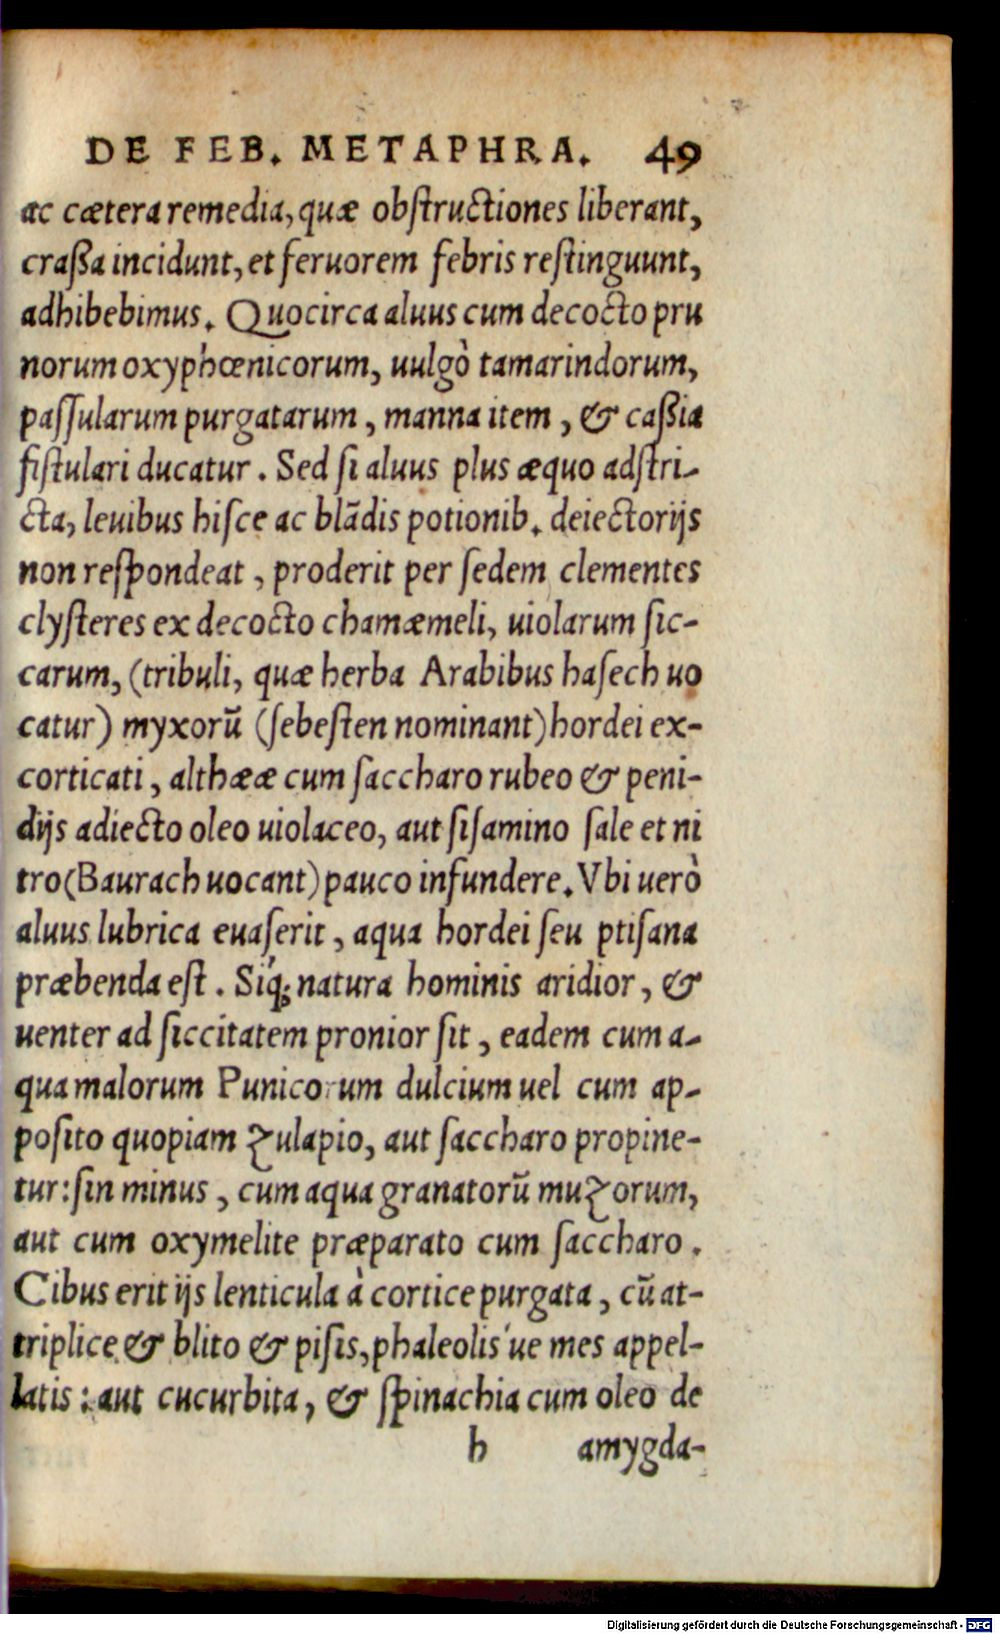 DE FEB. METAPHRA. 49
ac cætera remedia, quæ obſtructiones liberant,
craßa incidunt, et feruorem febris reſtinguunt,
adhibebimus. Quocirca aluus cum decocto pru
norum oxyphœnicorum, uulgò tamarindorum,
paſſularum purgatarum, manna item, & caßia
fiſtulari ducatur. Sed ſi aluus plus æquo adſtri-
cta, leuibus hiſce ac blādis potionib. deiectorijs
non reſpondeat, proderit per ſedem clementes
clyſteres ex decocto chamæmeli, uiolarum ſic-
carum, (tribuli, quæ herba Arabibus haſech uo
catur) myxorū (ſebeſten nominant) hordei ex-
corticati, althææ cum ſaccharo rubeo & peni-
dijs adiecto oleo uiolaceo, aut ſiſamino ſale et ni
tro (Baurach uocant) pauco infundere. Vbi uerò
aluus lubrica euaſerit, aqua hordei ſeu ptiſana
præbenda eſt. Siq́; natura hominis aridior, &
uenter ad ſiccitatem pronior ſit, eadem cum a-
qua malorum Punicorum dulcium uel cum ap-
poſito quopiam zulapio, aut ſaccharo propine-
tur: ſin minus, cum aqua granatorū muzorum,
aut cum oxymelite præparato cum ſaccharo.
Cibus erit ijs lenticula à cortice purgata, cū at-
triplice & blito & piſis, phaleolis´ue mes appel-
latis: aut cucurbita, & ſpinachia cum oleo de
h amygda-
Digitalisierung gefördert durch die Deutsche Forschungsgemeinschaft - DFG